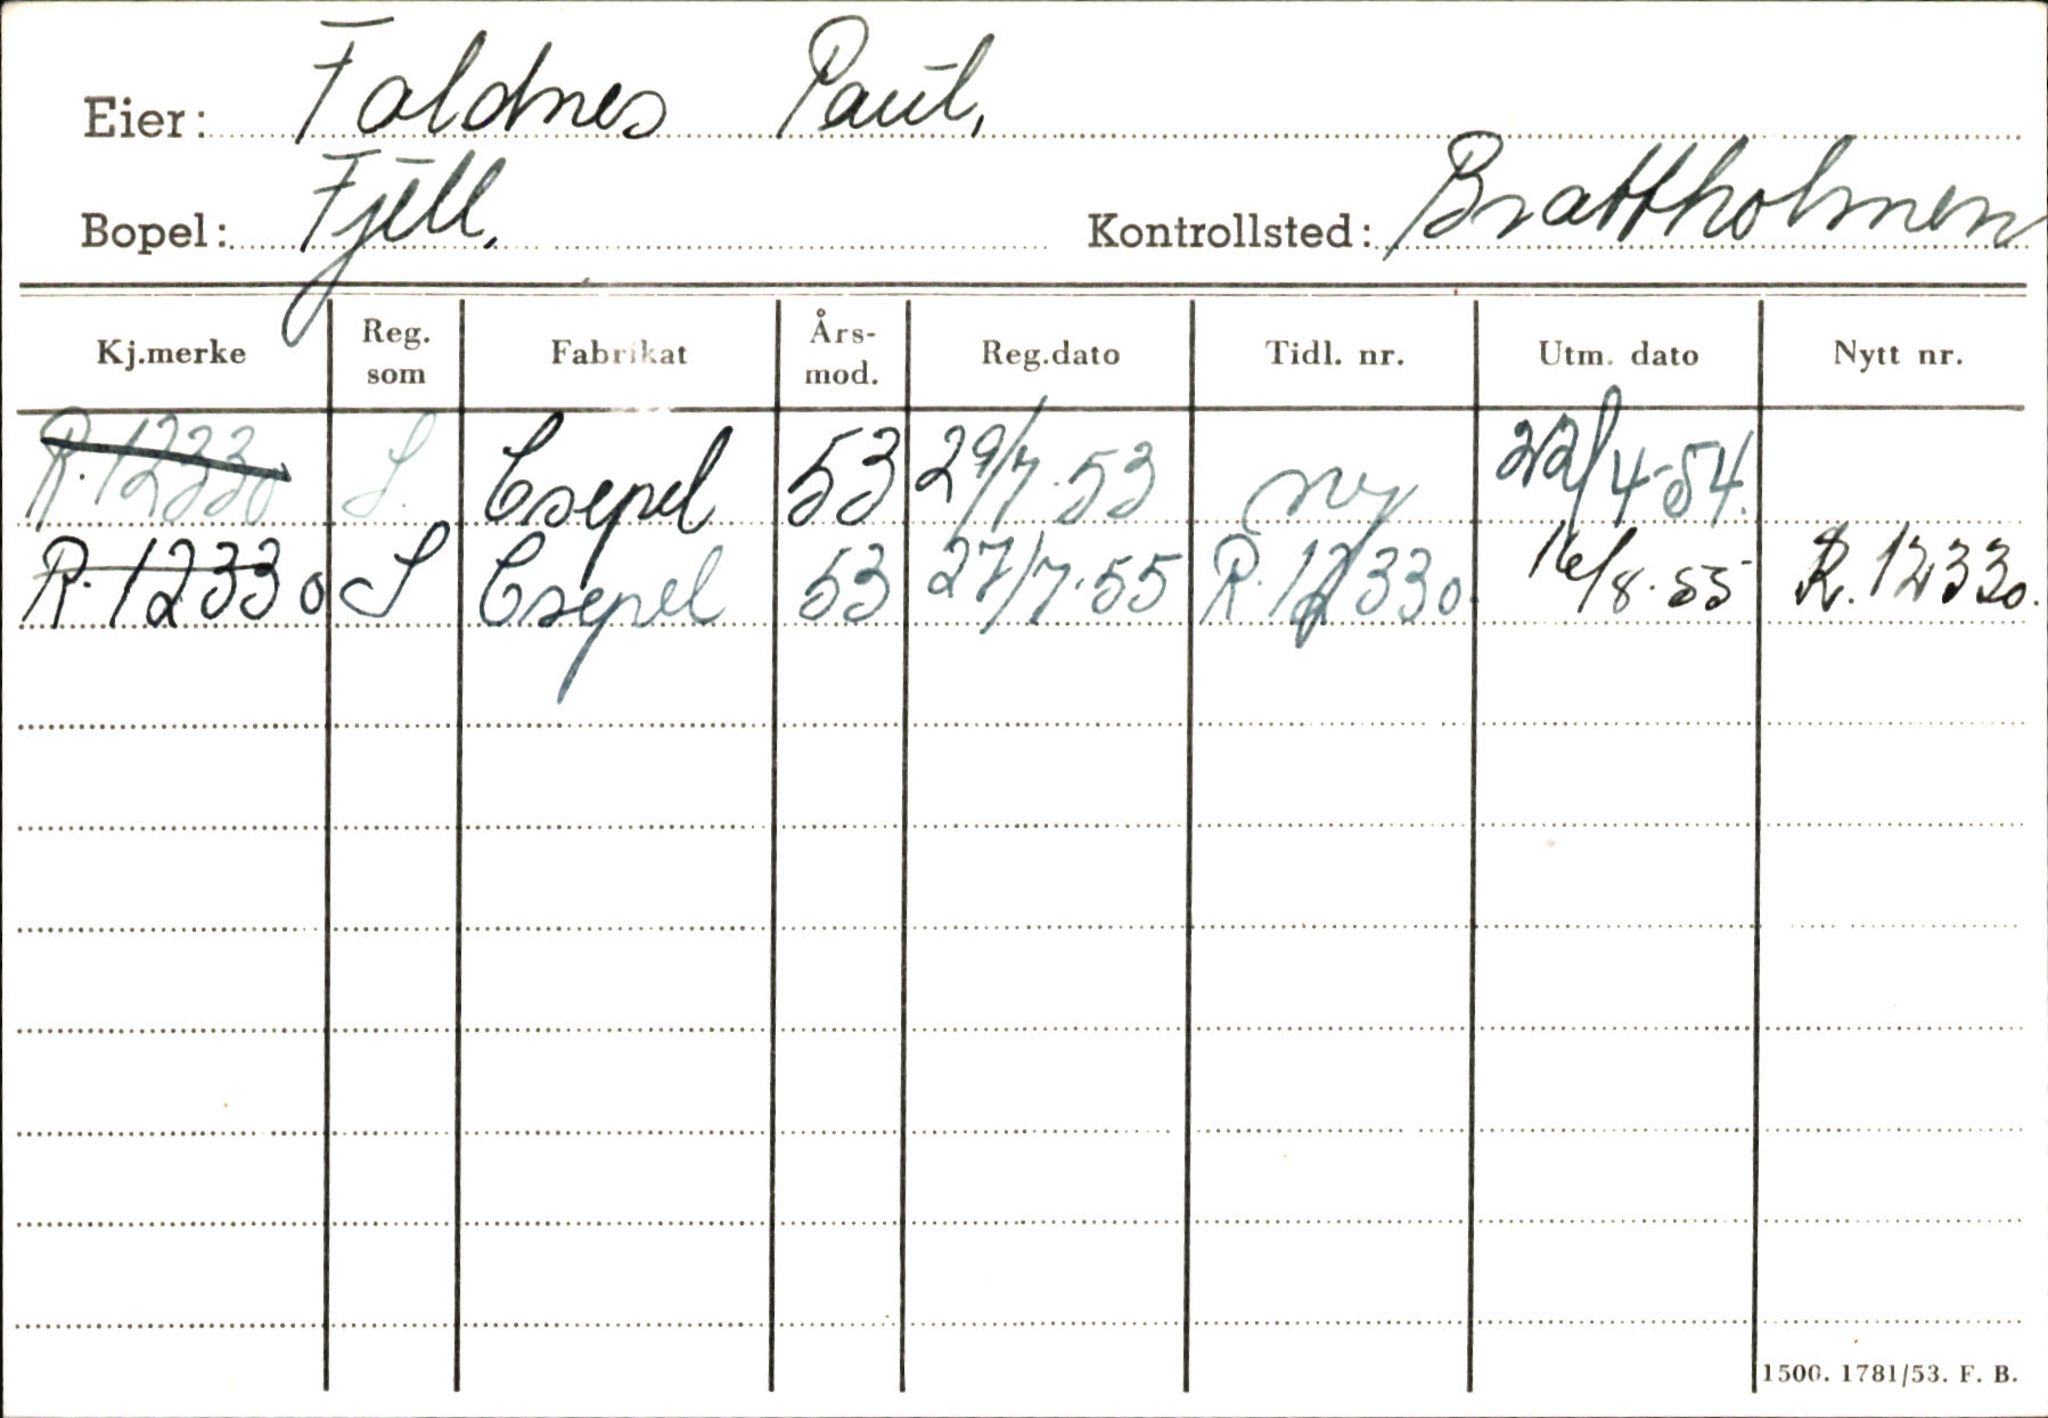 Eier: Foldnes Paul,
Bopel: Fjell. Kontrollsted: Brattholmen
Kj.merke Reg. som Fabrikat Års-mod. Reg.dato Tidl. nr. Utm. dato Nytt nr.
R.12330 S. Csepel 53 29/7.53 ny 22/4-54.
R.12330 S Csepel 53 27/7.55 R.12330. 16/8.55 R.12330.
1500. 1781/53. F. B.